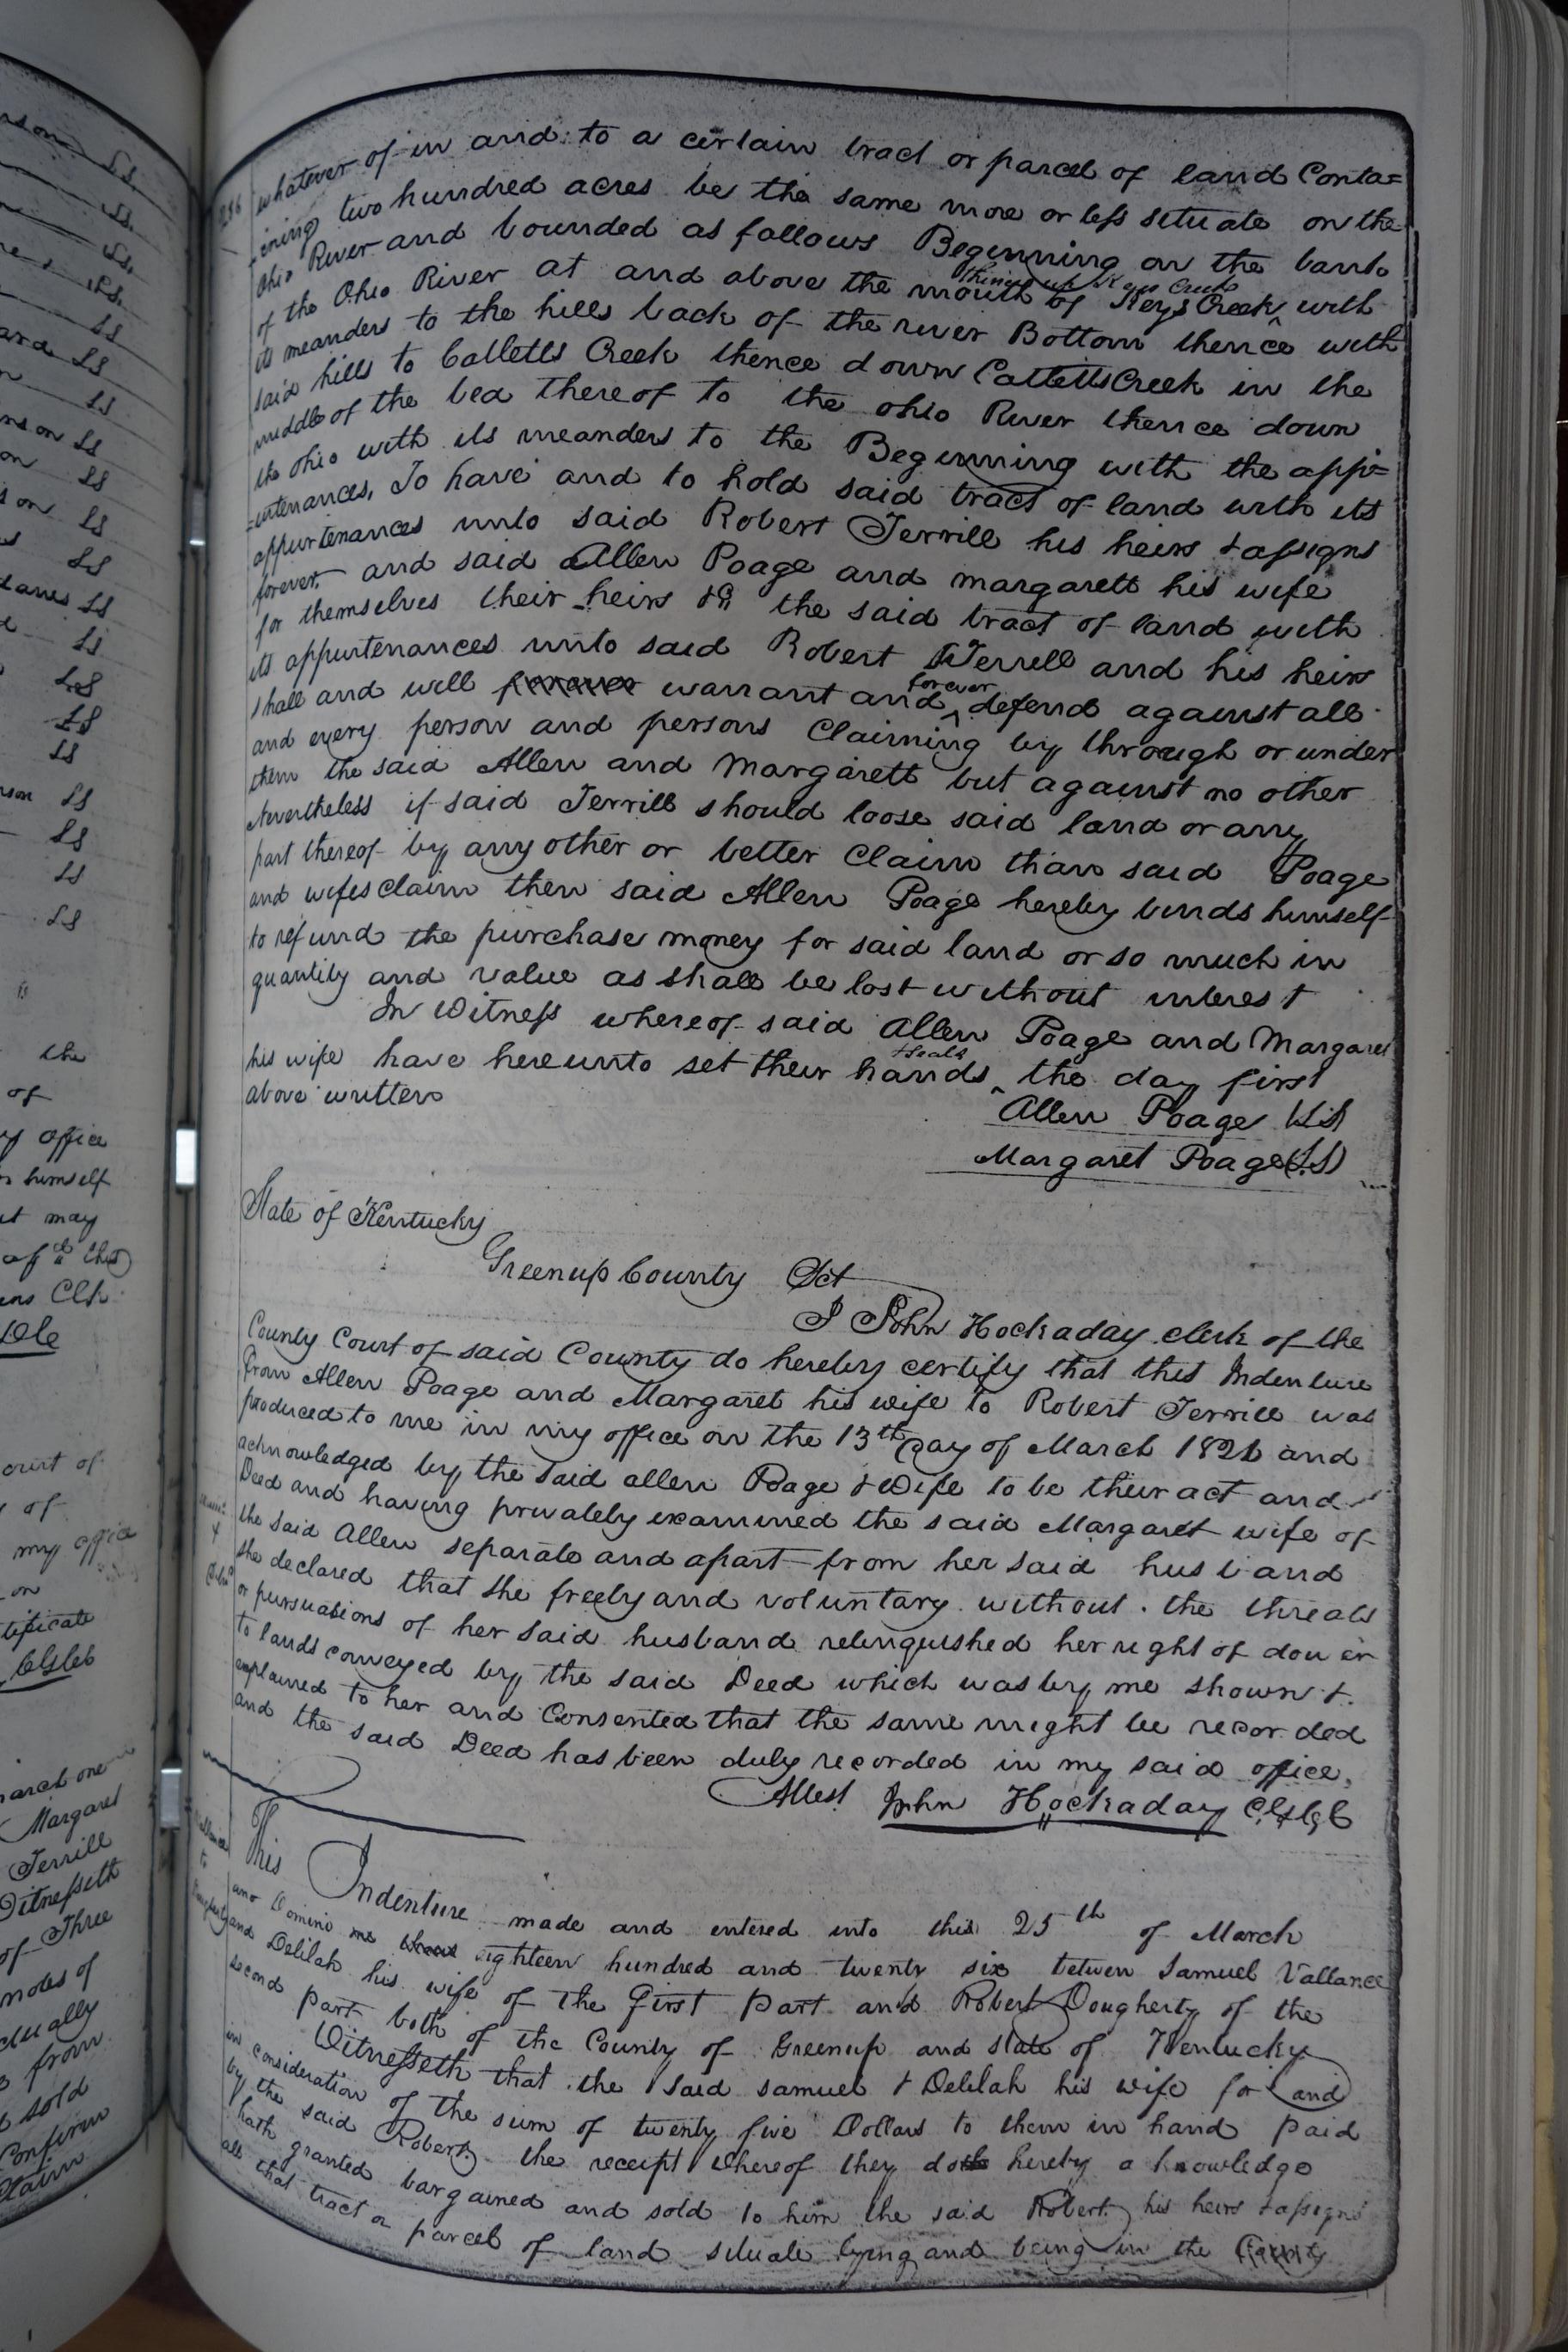 256
whatever of in and to a certain tract or parcel of land Conta=
ining two hundred acres be the same more or less situate on the
Ohio River and bounded as follows Beginning on the bank
of the Ohio River at and above the mouth of Keys Creek with
thence up Keys Creek
its meanders to the hills back of the river Bottom thence with
said hills to Catletts Creek thence down Catletts Creek in the
middle of the bed thereof to the ohio River thence down
the Ohio with its meanders to the Beginning with the app=
=urtenances, To have and to hold said tract of land with its
appurtenances unto said Robert Terrill his heirs & assigns
forever, and said Allen Poage and margarett his wife
for themselves their heirs &c the said tract of land with
its appurtenances unto said Robert Terrell and his heirs
shall and will forever warrant and forever defend against all
and every person and persons Claiming by through or under
them the said Allen and Margarett but against no other
Nevertheless if said Terrill should loose said land or any
part thereof by any other or better Claim than said Poage
and wifes claim then said Allen Poage hereby binds himself
to refund the purchase money for said land or so much in
quantity and value as shall be lost without interest
In Witness whereof said Allen Poage and Margaret
his wife have hereunto set their hands & seals the day first
above written
Allen Poage (LS)
Margaret Poage (LS)
State of Kentucky
Greenup County Sct
I John Hockaday clerk of the
County Court of said County do hereby certify that this Indenture
from Allen Poage and Margaret his wife to Robert Terrill was
produced to me in my office on the 13th day of March 1826 and
acknowledged by the said allen Poage & Wife to be their act and
Deed and having privately examined the said Margaret wife of
the said Allen separate and apart from her said husband
she declared that she freely and voluntary without the threats
or pursuations of her said husband relinquished her right of dower
to lands conveyed by the said Deed which was by me shown &
explained to her and Consented that the same might be recorded
and the said Deed has been duly recorded in my said office,
Attest John Hockaday
This Indenture made and entered into this 25th of March
Domini eighteen hundred and twenty six betwen Samuel Vallance
and Delilah his wife of the first part and Robert Dougherty of the
second part both of the County of Greenup and state of Kentucky
Witnesseth that the said samuel & Delilah his wife for and
in consideration of the sum of twenty five Dollars to them in hand paid
by the said Robert the receipt whereof they doth hereby a knowledge
hath granted bargained and sold to him the said Robert his heirs & assigns
all that tract or parcel of land situate lying and being in the County